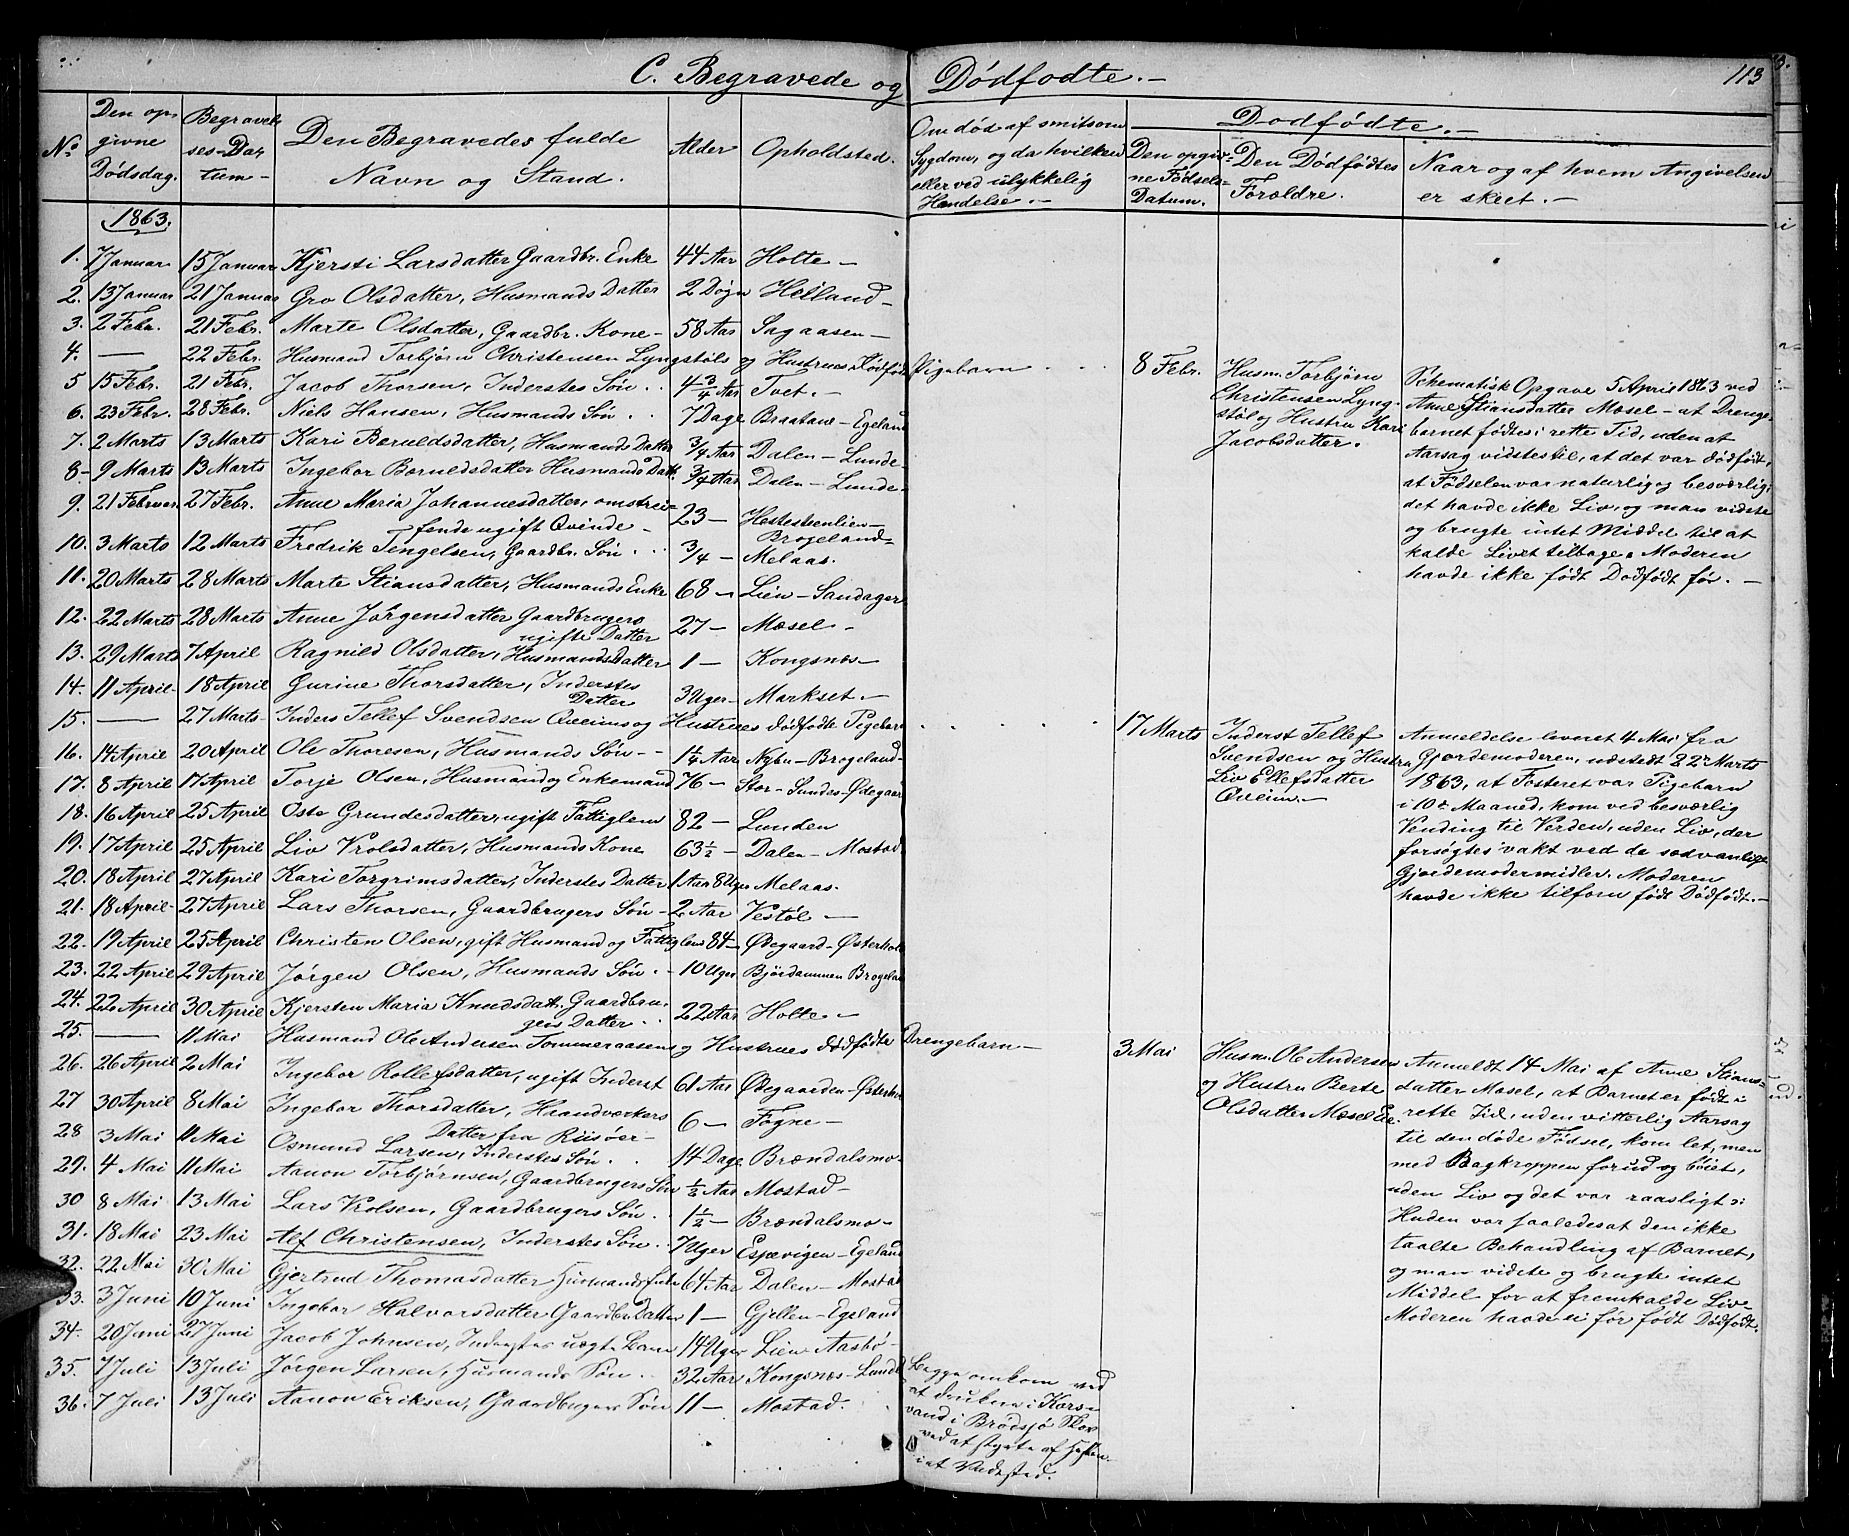 C. Begravede og Dödfödte. –
113
No
Den op-
givne
Dødsdag.
Begravel-
ses-Da-
tum –
Den Begravedes fulde
Navn og Stand.
Alder
Opholdsted.
Om død af smitsom
Sygdom, og da hvilken
eller ved ulykkelig
Hændelse. –
Dødfödte. –
Den opgiv-
ne Fødsels-
Datum.
Den Dödfödtes
Forældre.
Naar og af hvem Angivelsen
er skeet. –
1863.
1. 7 Januar 15 Januar Kjersti Larsdatter Gaardbr. Enke 44 Aar Holte –
2. 13 Januar 21 Januar Gro Olsdatter, Husmands Datter 2 Døgn Heiland –
3. 2 Febr. 21 Febr. Marte Olsdatter, Gaardbr. Kone – 58 Aar Sagaasen –
4. — 22 Febr. Husmand Torbjörn Christensen Lyngstöls og Hustrues dödfödte Pigebarn . . . 8 Febr.
5 15 Febr. 21 Febr. Jacob Thorsen, Inderstes Sön . . 4 3/4 Aar Tvet. –
6. 23 Febr. 28 Febr. Niels Hansen, Husmands Sön . . 7 Dage Braatane – Egeland
7. 2 Marts 13 Marts Kari Beruldsdatter, Husmands Datter 3/4 Aar Dalen – Lunde –
8 – 9 Marts 13 Marts Ingebor Boruldsdatter Husmands Datt. 3/4 Aar Dalen – Lunde –
9. 21 Februar 27 Febr. Anne Maria Johannesdatter, omstrei-
fende ugift Qvinde – 23 – Hestesteenlien –
Brogeland –
10. 3 Marts 12 Marts Fredrik Tengelsen, Gaardbr. Sön . . 3/4 – Melaas.
11. 20 Marts 28 Marts Marte Stiansdatter, Husmands Enke 68 – Lien – Sandager
12. 22 Marts 28 Marts Anne Jörgensdatter Gaardbrugers
ugifte Datter 27 – Mosel –
13. 29 Marts 7 April Ragnild Olsdatter, Husmands Datter 1 – Kongsnæs –
14. 11 April – 18 April Gurine Thorsdatter, Inderstes
Datter 3 Uger – Markset. –
15. — 27 Marts – Inders Tellef Svendsen Qveims og Hustrues dödfödte Pigebarn . . . . 17 Marts
16. 14 April 20 April Ole Thoresen, Husmands Sön – – 1 1/4 Aar Nybu – Brogeland –
17. 8 April 17 April Torje Olsen, Husmand og Enkemand 76 – Stor – Lundes Ødegaar
18. 16 April 25 April Oste Grundesdatter, ugift Fattiglem 82 – Lunden
19. 17 April 25 April Liv Vrolsdatter, Husmands Kone 63 1/2 – Dalen – Mostad
20. 18 April 27 April Kari Torgrimsdatter, Inderstes Datter 1 Aar 8 Uger Melaas.
21. 18 April – 27 April Lars Thorsen, Gaardbrugers Sön – 2 Aar Vestöl –
22. 19 April 25 April Christen Olsen, gift Husmand og Fattiglem 84 – Ødegaard – Østerholt
23. 22 April 29 April Jörgen Olsen, Husmands Sön . – 10 Uger Björdammen Brogeland
24. 22 April 30 April Kjersten Maria Knudsdatt. Gaardbru-
gers Datter . . 22 Aar Holte. –
25. — 11 Mai Husmand Ole Andersen Tommeraasens og Hustrues dödfödte Drengebarn – 3 Mai
26. 26 April 2 Mai Ingebor Rollefsdatter, ugift Inderst 61 Aar Ødegaarden – Østerho
27 30 April 8 Mai Ingebor Thorsdatter, Haandværkers
Datter fra Riisöer – 6 – Fogne –
28 3 Mai 11 Mai Osmund Larsen, Inderstes Sön . . 14 Dage Brændalsmo –
29. 4 Mai 11 Mai Aanon Torbjörnsen, Gaardbrugers Sön 1/2 Aar Mostad –
30 8 Mai 13 Mai Lars Vrolsen, Gaardbrugers Sön . 1 1/2 – Brændalsmo –
31. 18 Mai 23 Mai Alf Christensen, Inderstes Sön . . 7 Uger Espevigen – Egeland
32. 22 Mai 30 Mai Gjertrud Thomasdatter Husmands Enke 64 Aar Dalen – Mostad
33. 3 Juni 10 Juni Ingebor Halvorsdatter Gaardbr. Datter 1 – Gjellen – Egeland
34. 20 Juni 27 Juni Jacob Johnsen, Inderstes uægte Barn 14 Uger Lien – Aasbø –
35. 7 Juli 13 Juli Jörgen Larsen, Husmands Sön . . 32 Aar Kongsnæs – Lunde
36. 7 Juli 13 Juli Aanon Eriksen, Gaardbrugers Sön 11 – Mostad.
Begge omkom ved
at drukne i
vand i
ved at styrte af
i et Vadested.
Husm. Torbjörn
Christensen Lyng-
stöl og Hustru Kari
Jacobsdatter.
Schematisk Opgave 5 April 1863 ved
Anne Stiansdatter Mosel – at Drenge-
barnet födtes i rette Tid, uden at
Aarsag vidstes til, at det var dödfödt,
at Födselen var naturlig og besværlig;
det havde ikke Liv, og man vidste
og brugte intet Middel til at
kalde Livet tilbage. Moderen
havde ikke født Dødfødt før. –
Inderst Tellef
Svendsen og Hustru
Liv Ellefsdatter
Qveim. –
Anmeldelse leveret 4 Mai fra
Gjordemoderen, udstedt 22 Marts
1863, at Fosteret var Pigebarn
i 10de Maaned, kom ved besværlig
Vending til Verden, uden Liv, der
forsøgtes vakt ved de sædvanlige
Gjordemodermidler. Moderen
havde ikke tilforn født Dødfødt. –
Husm. Ole Andersen
og Hustru Berte
Olsdatter Mosel Eie.
Anmeldt 14 Mai af Anne Stians-
datter Mosel, at Barnet er født i
rette Tid, uden vitterlig Aarsag
til den døde Fødsel, kom let, men
med Bagkroppen forud og böiet,
uden Liv og det var raasligt ɔ:
Huden var saaledes at den ikke
taalte Behandling af Barnet,
og man vidste og brugte intet
Middel for at fremkalde Liv –
Moderen havde ei før født Dødfødt.